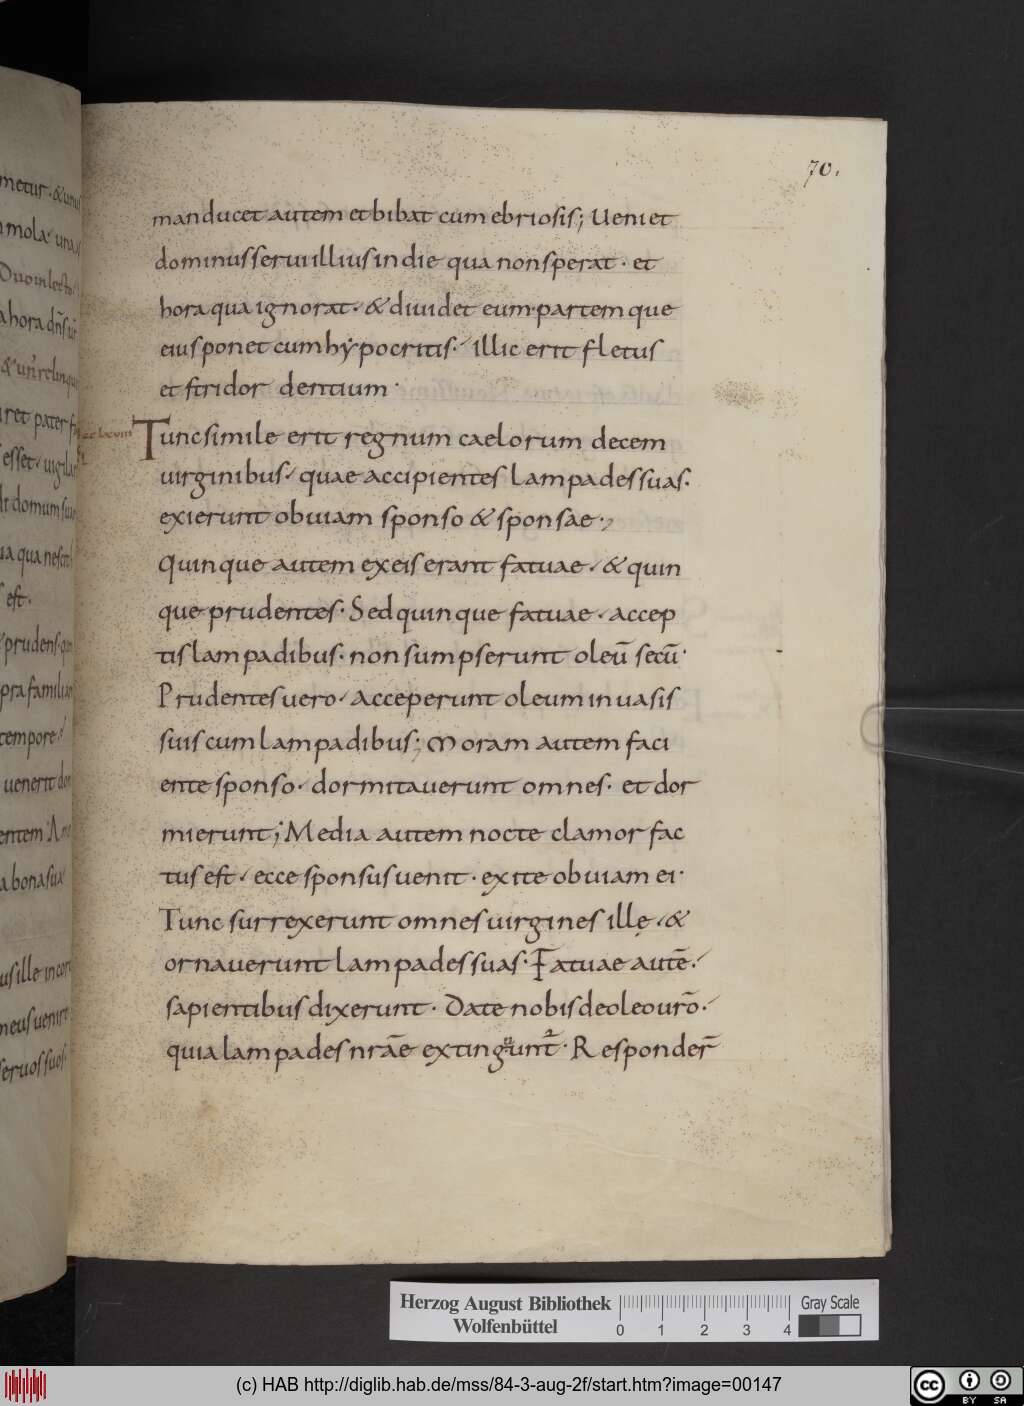 70.
manducet autem et bibat cum ebriosis; Ueniet
dominus serui illius in die qua non sperat. et
hora qua ignorat. & diuidet eum. partemque
eius ponet cum hẏpocritis. illic erit fletus
et stridor dentium.
Tunc simile erit regnum caelorum decem
uirginibus. quae accipientes lampades suas.
exierunt obuiam sponso & sponsae.,
Quinque autem ex eis erant fatuae. & quin
que prudentes. Sed quinque fatuae. accep
tis lampadibus. non sumpserunt oleū secū.
Prudentes uero. acceperunt oleum in uasis
suis cum lampadibus; Moram autem faci
ente sponso. dormitauerunt omnes. et dor
mierunt; Media autem nocte clamor fac
tus est. ecce sponsus uenit. exite obuiam ei.
Tunc surrexerunt omnes uirgines illę. &
ornauerunt lampades suas. Fatuae autē.
sapientibus dixerunt. Date nobis de oleo uro̅.
quia lampades nrāe extinguunt. Responder̅
metur. & una
mola. una
Duo in lecto
hora dn̄s
ret pater fa
esset. uigilar
domum suā
qua nescit
est.
prudens. quē
pra familiam
tempore.
uenerit do
entem. Am
a bona sua
us ille in cor
meus uenire
seruos suos.
Herzog August Bibliothek
Wolfenbüttel
0 1 2 3 4
Gray Scale
(c) HAB http://diglib.hab.de/mss/84-3-aug-2f/start.htm?image=00147
cc BY SA